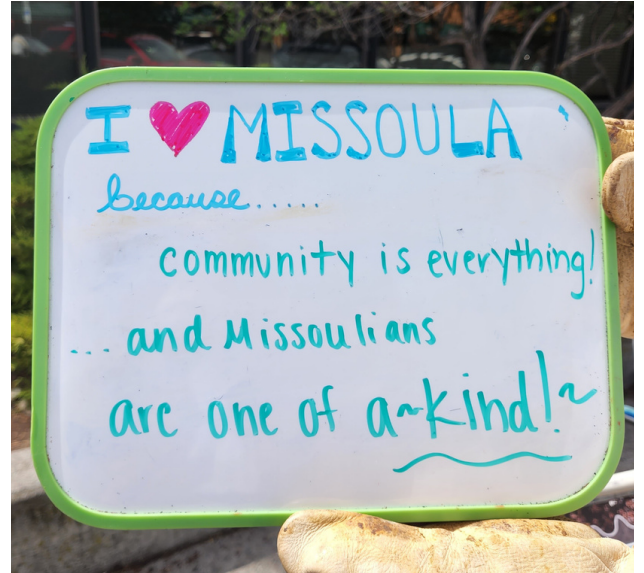 I ♥ MISSOULA
because.....
community is everything!
... and Missoulians
are one of a~kind!~